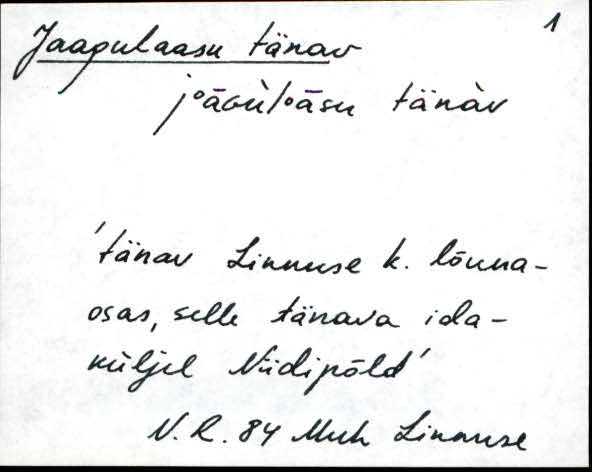 1
Jaagulaasu tänav
j°āGùl°āsu tänàv
'tänav Linnuse k. lõuna-
osas, selle tänava ida-
küljel Niidipõld'
V. R. 84 Muh Linnuse